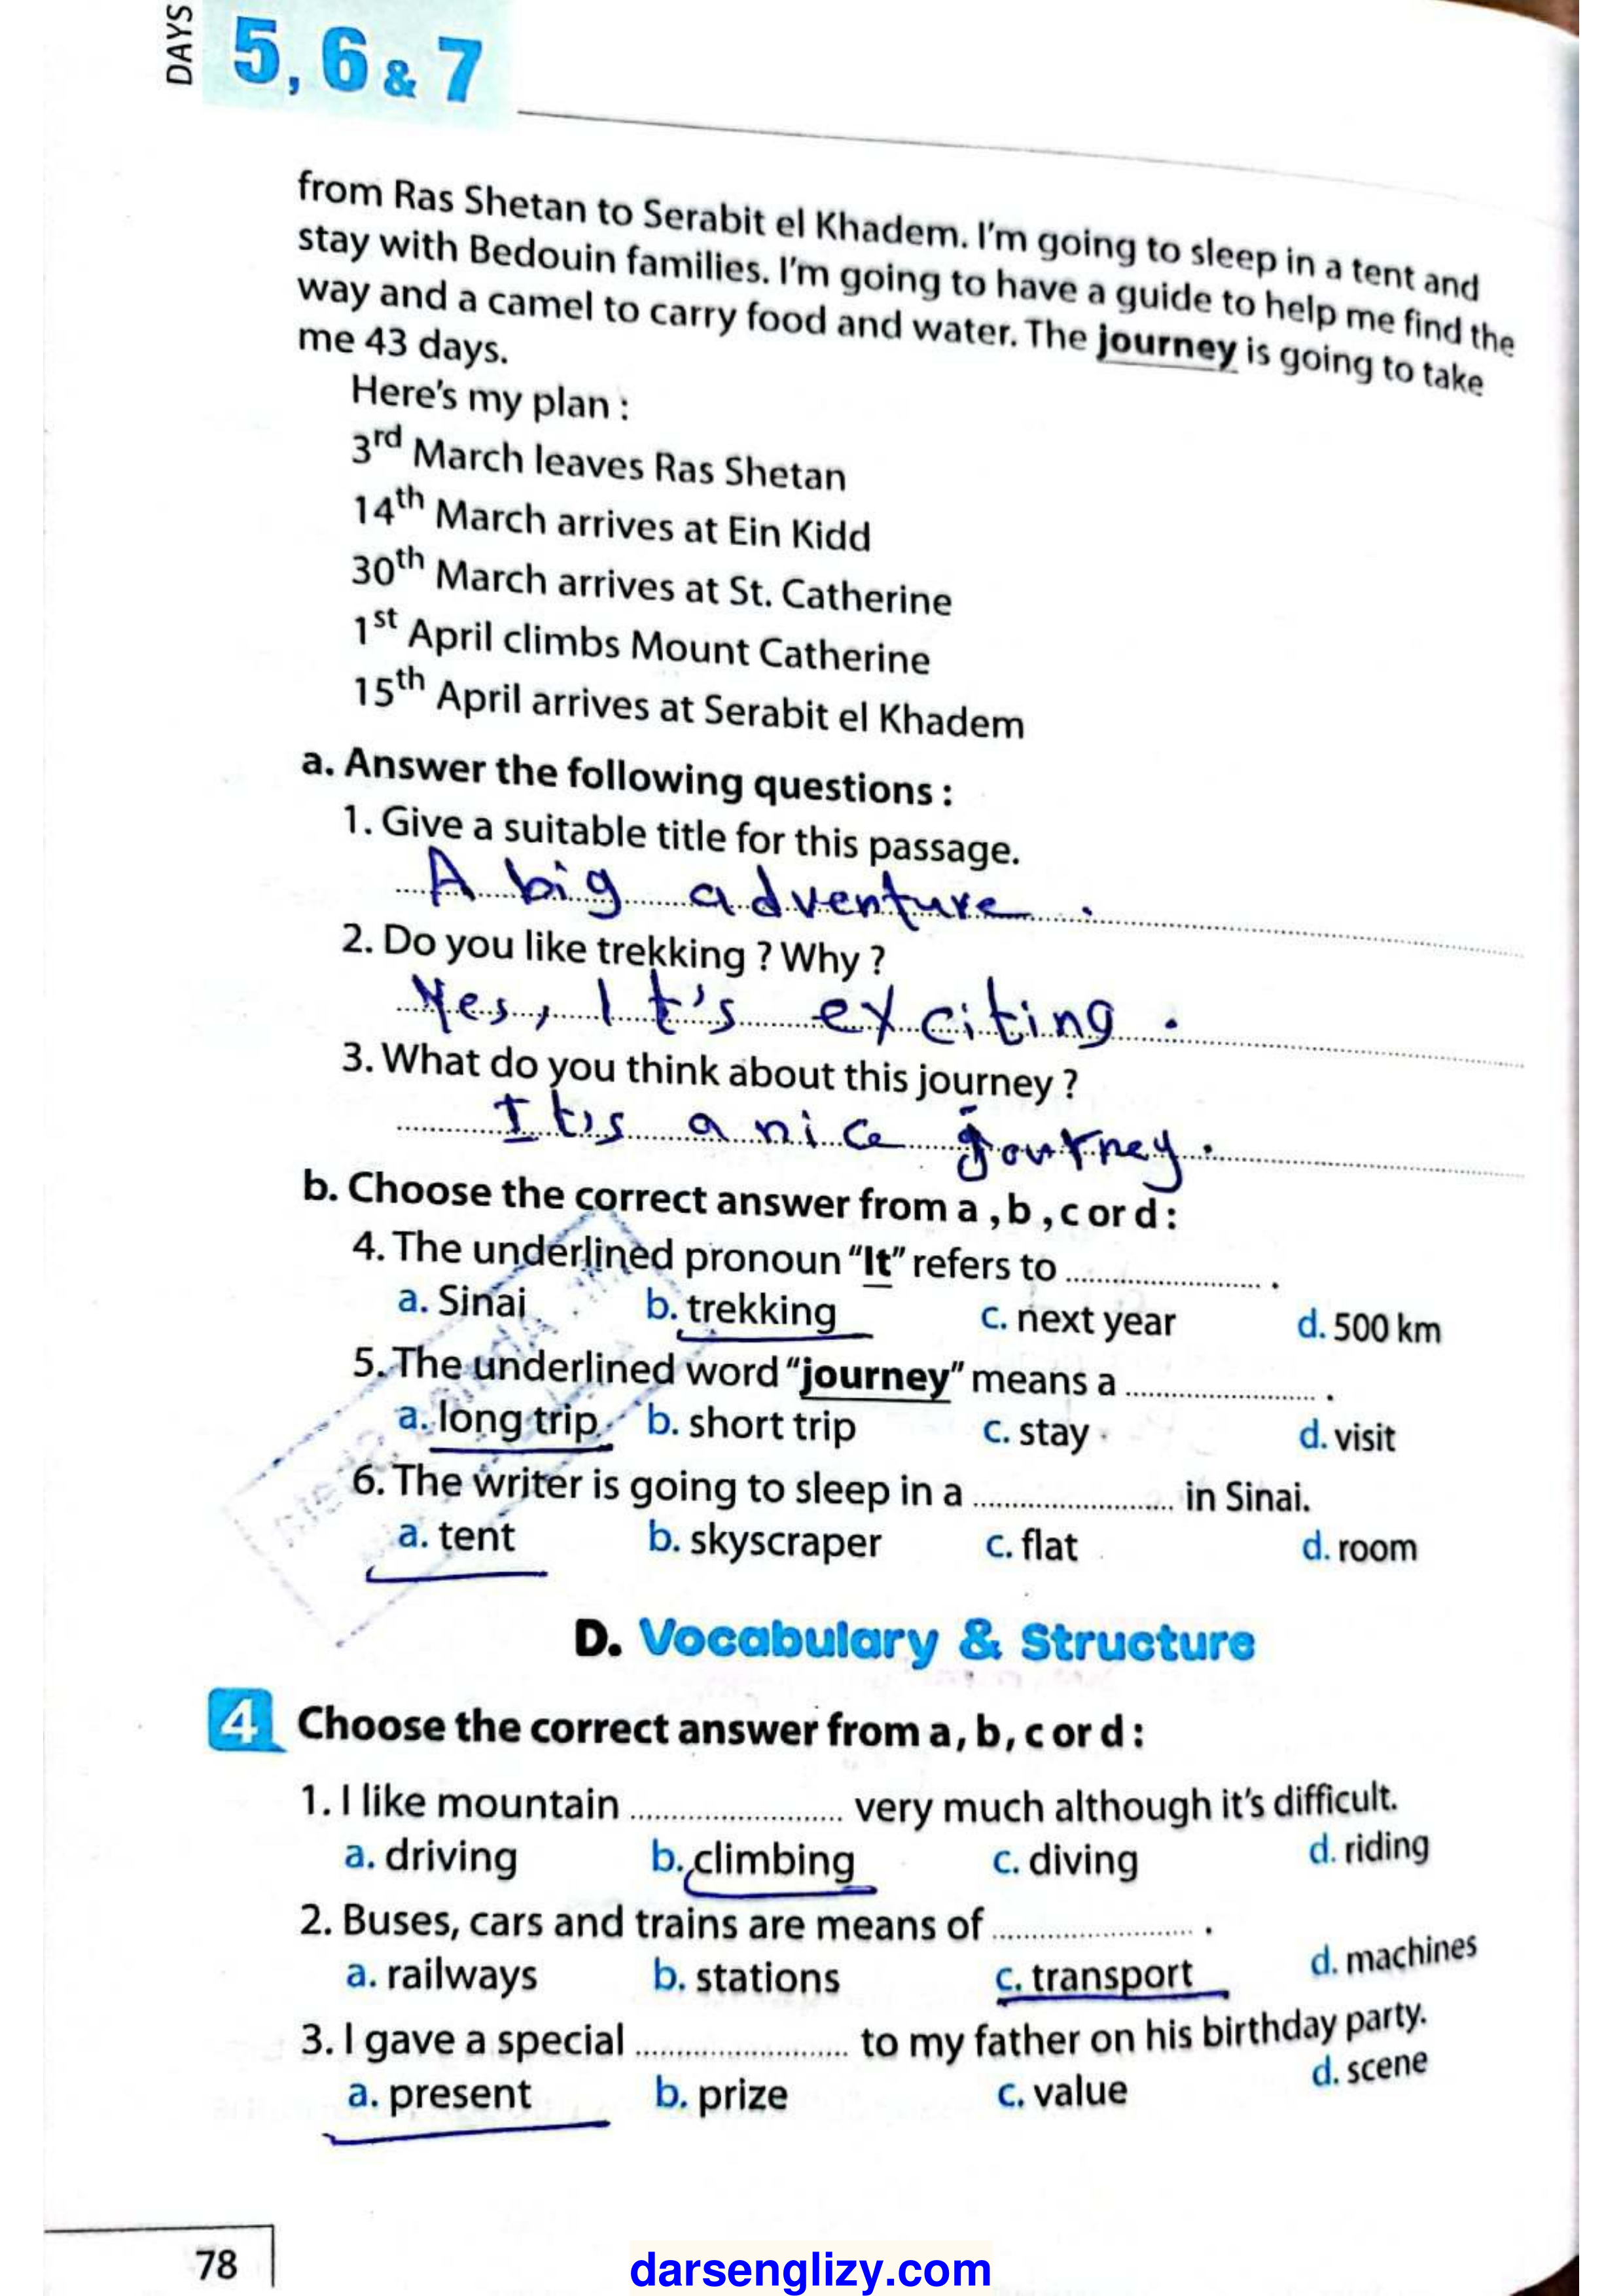 DAYS
5, 6 & 7
from Ras Shetan to Serabit el Khadem. I'm going to sleep in a tent and
stay with Bedouin families. I'm going to have a guide to help me find the
way and a camel to carry food and water. The journey is going to take
me 43 days.
Here's my plan :
3rd March leaves Ras Shetan
14th March arrives at Ein Kidd
30th March arrives at St. Catherine
1st April climbs Mount Catherine
15th April arrives at Serabit el Khadem
a. Answer the following questions :
1. Give a suitable title for this passage.
A big adventure .
2. Do you like trekking ? Why ?
Yes, It's exciting .
3. What do you think about this journey ?
It's a nice journey .
b. Choose the correct answer from a , b , c or d :
4. The underlined pronoun “It” refers to ........................ .
a. Sinai b. trekking c. next year d. 500 km
5. The underlined word “journey” means a ........................ .
a. long trip b. short trip c. stay d. visit
6. The writer is going to sleep in a ........................ in Sinai.
a. tent b. skyscraper c. flat d. room
D. Vocabulary & Structure
4 Choose the correct answer from a , b , c or d :
1. I like mountain ........................ very much although it's difficult.
a. driving b. climbing c. diving d. riding
2. Buses, cars and trains are means of ........................ .
a. railways b. stations c. transport d. machines
3. I gave a special ........................ to my father on his birthday party.
a. present b. prize c. value d. scene
78
darsenglizy.com